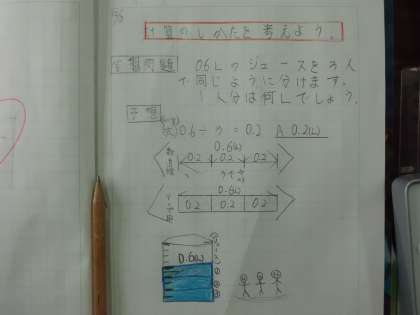 計算のしかたを考えよう。
学習問題 0.6Lのジュースを3人
で同じように分けます。
1人分は何Lでしょう。
予想
(式) 0.6÷3=0.2 A. 0.2(L)
数直線
0.6(L)
0.2 0.2 0.2
テープ図
0.6(L)
0.2 0.2 0.2
0.6(L)